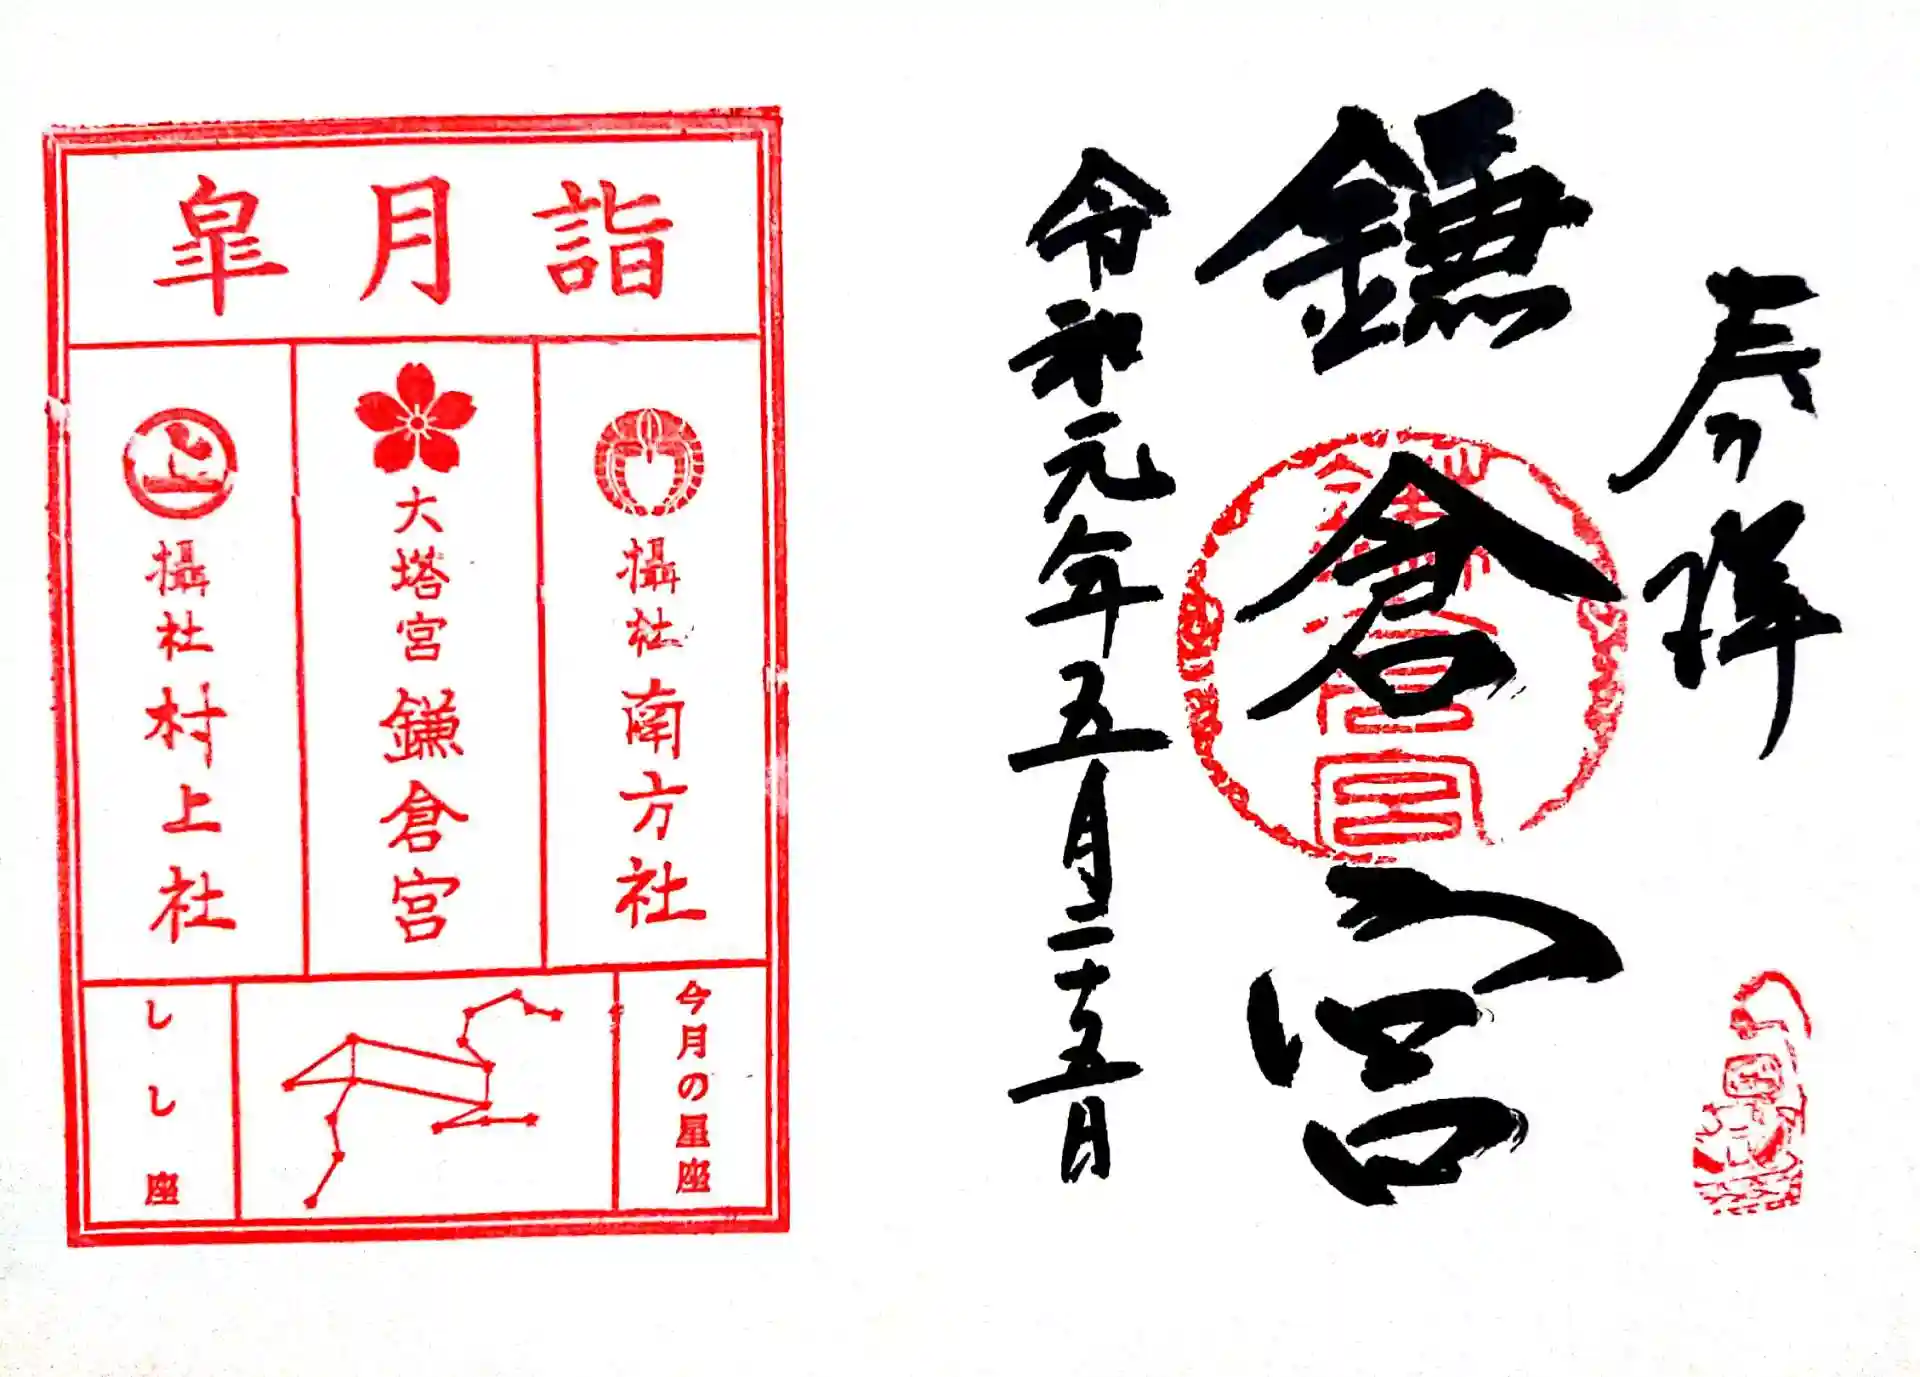 奉拝
鎌倉宮
鎌倉宮
令和元年五月二十五日
皐月詣
攝社南方社
大塔宮鎌倉宮
攝社村上社
今月の星座
しし座